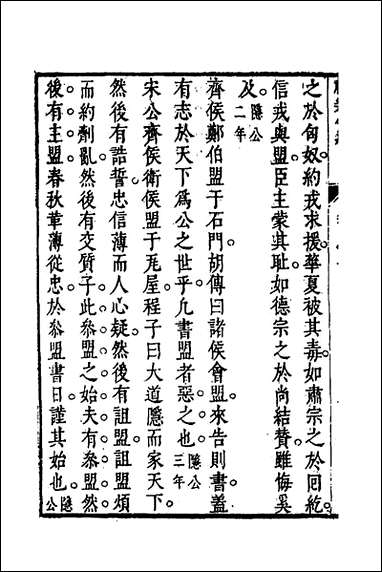 之於匈奴約戎求援華夏被其毒如肅宗之於回紇
信戎與盟臣主蒙其耻如德宗之於尚结賛雖悔奚
及隱公二年
齊侯鄭伯盟于石門胡傳曰諸侯會盟來告則書蓋
有志於天下爲公之世乎凡書盟者惡之也隱公三年
宋公齊侯衛侯盟于瓦屋程子曰大道隱而家天下
然後有誥誓忠信薄而人心疑然後有詛盟詛盟煩
而約劑亂然後有交質子此叅盟之始夫有叅盟然
後有主盟春秋革薄從忠於叅盟書日謹其始也隱公